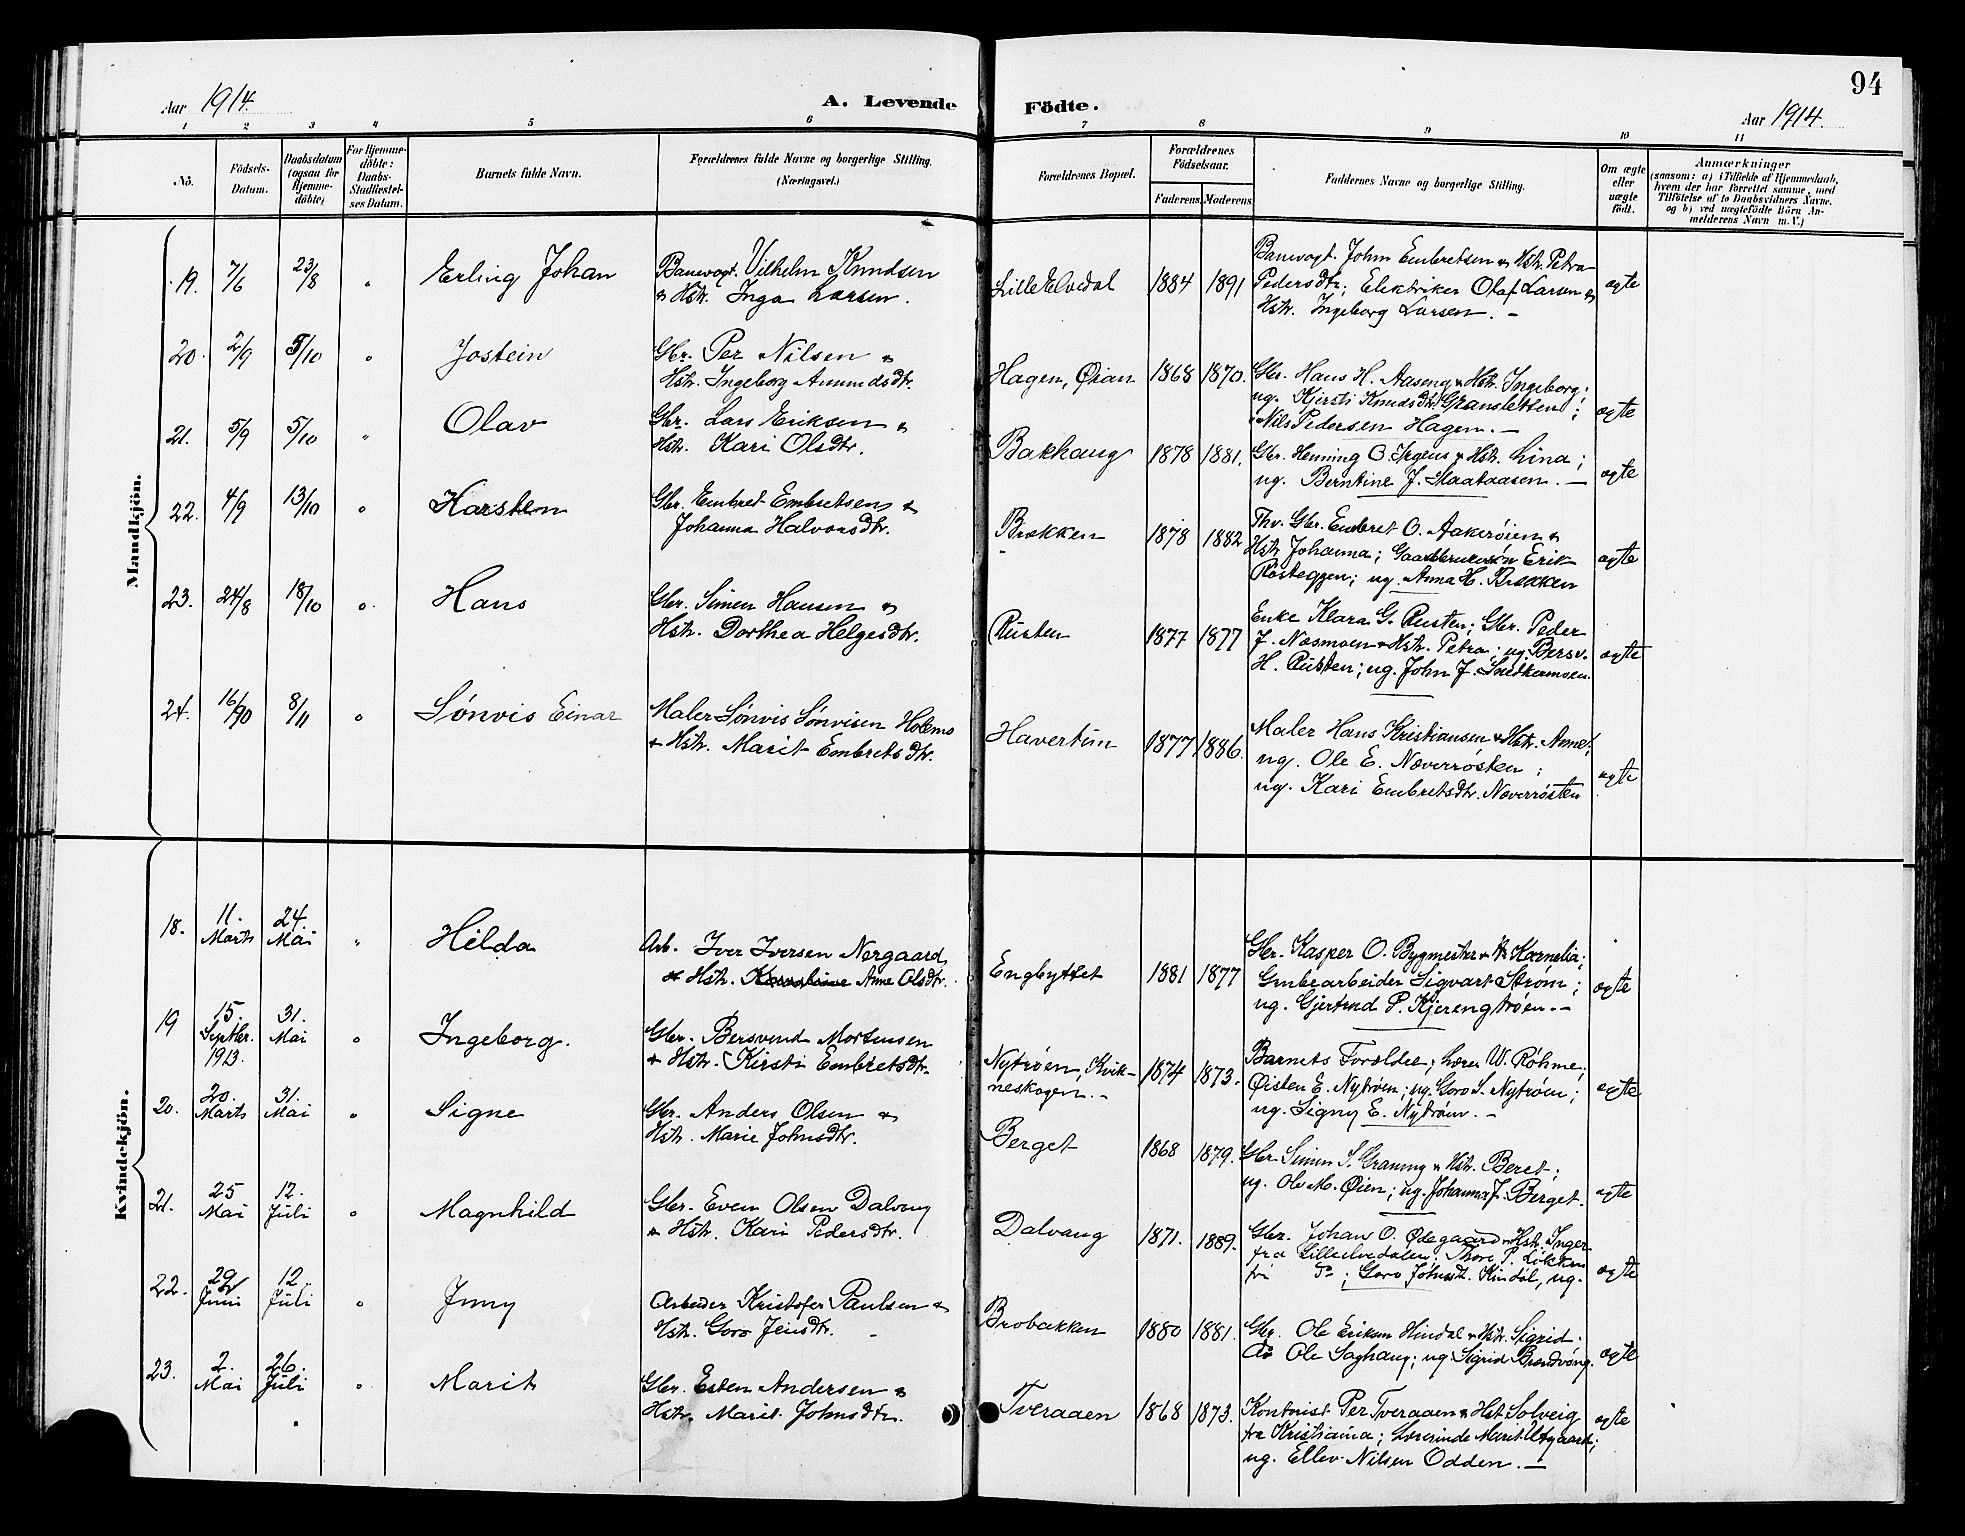 94
Aar 1914.
A. Levende Födte.
Aar 1914.
1 2 3 4 5 6 7 8 9 10 11
Nô.
Födsels-
Datum.
Daabsdatum
(ogsaa for
Hjemme-
döbte)
For Hjemme-
döbte:
Daabs-
Stadfæstel-
ses Datum.
Barnets fulde Navn.
Forældrenes fulde Navne og borgerlige Stilling.
(Næringsvei.)
Forældrenes Bopæl.
Forældrenes
Födselsaar.
Faderens. Moderens.
Faddernes Navne og borgerlige Stilling.
Om ægte
eller
uægte
födt.
Anmærkninger
(saasom: a) i Tilfælde af Hjemmedaab,
hvem der har forrettet samme, med
Tilföielse af to Daabsvidners Navne,
og b) ved uægtefödte Börn An-
melderens Navn m. V.)
Mandkjön.
19. 7/6 23/8 " Erling Johan
Banevogt. Vilhelm Knudsen
& Hstr. Inga Larsen.
Lille Elvedal 1884 1891
Banevogt. John Embretsen & Hstr. Petra
Pedersdtr; Elektriker Olaf Larsen &
Hstr. Ingeborg Larsen. –
ægte
20. 2/9 5/10 " Jostein
Gbr. Per Nilsen &
Hstr. Ingeborg Amundsdtr.
Hagen, Øian 1868 1870.
Gbr. Hans H. Aaseng & Hstr. Ingeborg;
ug. Kjersti Knudsdtr. Gransletten;
Nils Pedersen Hagen. –
ægte
21. 5/9 5/10 " Olav
Gbr. Lars Eriksen &
Hstr. Kari Olsdtr.
Bakhaug 1878 1881.
Gbr. Henning O. Irgens & Hstr. Lina;
ug. Berntine J. Staataasen. –
ægte
22. 4/9 13/10 " Karsten
Gbr. Embret Embretsen &
Johanna Halvorsdtr.
Brækken 1878 1882
Thv. Gbr. Embret O. Aakerøien &
Hstr Johanna; Gaardbrukersøn Erik
Røsteggen; ug. Anna H. Brækken
ægte
23. 24/8 18/10 " Hans
Gbr. Simen Hansen &
Hstr. Dorthea Helgesdtr.
Rusten 1877 1877
Enke Klara G. Rusten; Gbr. Peder
J. Næsmoen & Hstr. Petra; ug Bersv.
H. Rusten; ug. John J.
ægte
24. 16/10 8/11 " Sønvis Einar
Maler Sønvis Sønvisen Holemo
& Hstr. Marit Embretsdtr.
Havertun 1877 1886.
Maler Hans Kristiansen & Hstr. Anne;
ug. Ole E. Næverrøsten;
ug. Kari Embretsdtr. Næverrøsten
ægte
Kvindekjön.
18. 11. Marts 24. Mai " Hilda
Arb. Iver Iversen Nergaard
& Hstr. Anne Olsdtr.
Engbyttet 1881 1877
Gbr. Kasper O. Bygmester & H. Kornelia;
Grubearbeider Sigvart Strøm;
ug. Gjertrud P. Kjerengtrøen. –
ægte
19 15. Septbr. 1913. 31. Mai " Ingeborg.
Gbr. Bersvend Mortensen
& Hstr. Kirsti Embretsdtr.
Nytrøen, Kvik-
neskogen. – 1874 1873.
Barnets Forældre; Lærer W. Röhme;
Øisten E. Nytrøen; ug. Goro S. Nytrøen;
ug. Signy E. Nytrøen. –
ægte
20. 20. Marts 31. Mai " Signe
Gbr. Anders Olsen &
Hstr. Marie Johnsdtr.
Berget 1868 1879.
Gbr. Simen S. Graning & Hstr. Beret;
ug. Ole M. Øien; ug. Johanna J. Berget.
ægte
21. 25 Mai 12. Juli " Magnhild
Gbr. Even Olsen Dalvang
& Hstr. Kari Pedersdtr.
Dalvang 1871. 1889.
Gbr. Johan O. Ødegaard & Hstr. Inger
fra Lilleelvedalen. Thore P. Løkken
fri Do; Goro Johnsdt. Kindøl, ug.
ægte
22. 29 Juni 12 Juli " Jenny
Arbeider Kristofer Paulsen &
Hstr. Goro Jensdtr. –
Brobakken 1880 1881.
Gbr. Ole Eriksen Hindal & Hstr. Sigrid.
Ole Saghaug; ug Sigrid Brendvang.
ægte
23. 2. Mai 26. Juli " Marit
Gbr. Esten Andersen &
Hstr. Marit Johnsdtr.
Tveraaen 1868 1873.
Kontorist Per Tveraaen & Hst. Solveig
fra Kristiania; Lærerinde Marit Utgaard;
ug. Ellev Nilsen Odden. –
ægte